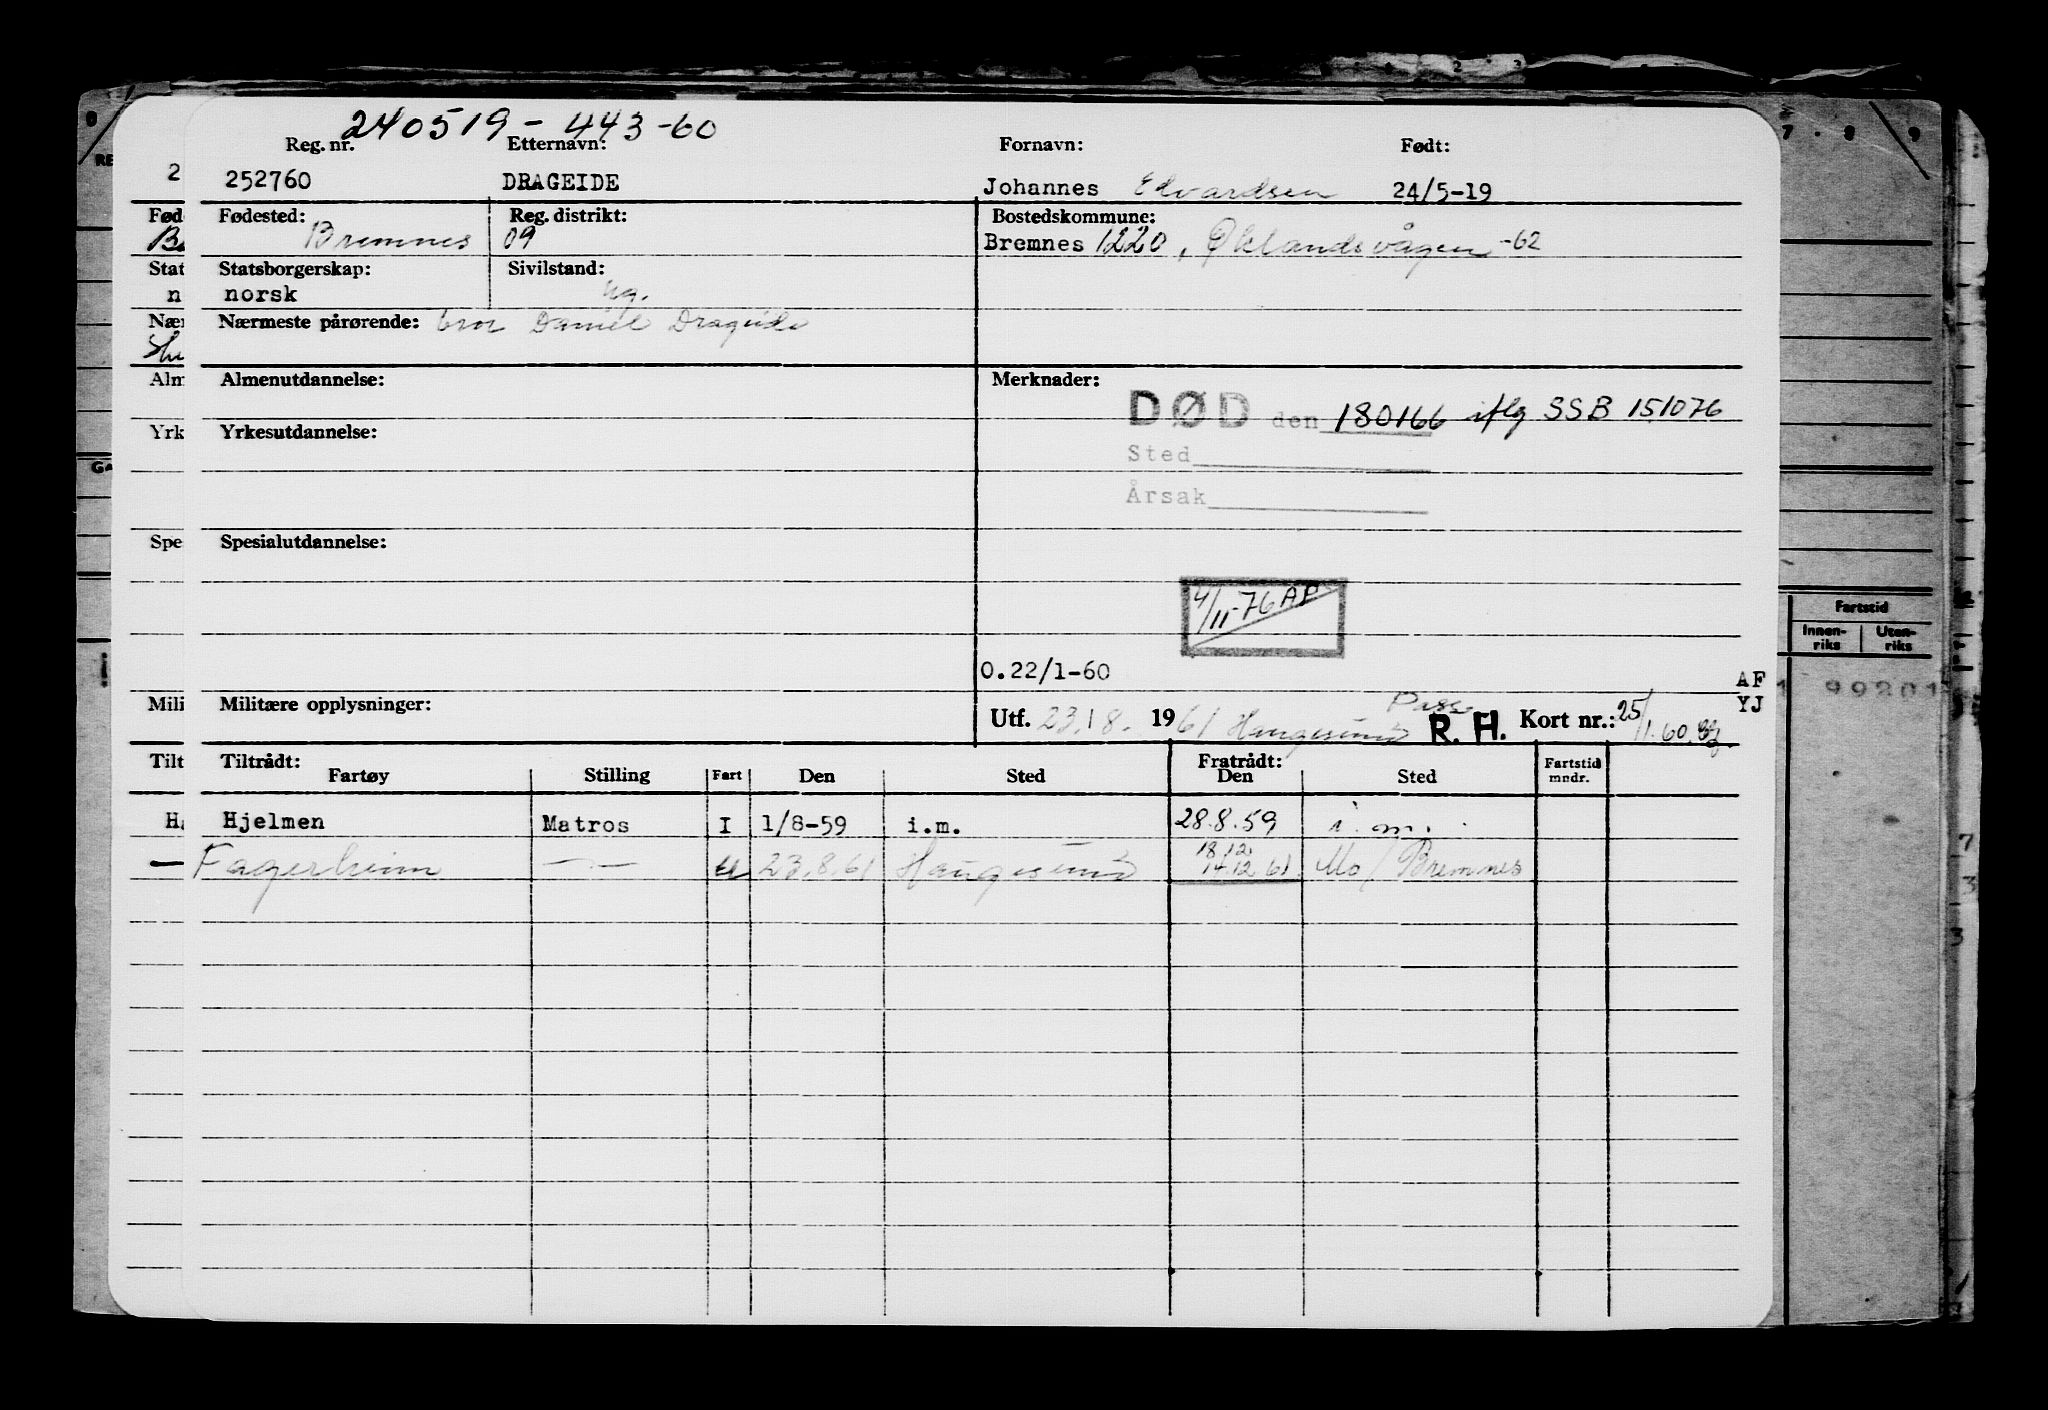 240519 - 443-60
Reg. nr. Etternavn: Fornavn: Født:
252760 DRAGEIDE Johannes Edvardsen 24/5-19
Fødested: Reg. distrikt: Bostedskommune:
Bremnes 09 Bremnes 1220, Øklandsvågen -62
Statsborgerskap: Sivilstand:
norsk ug.
Nærmeste pårørende: bror Daniel Drageide
Almenutdannelse: Merknader:
DØD den 180166 iflg SSB 151076
Yrkesutdannelse:
Sted
Årsak
Spesialutdannelse:
4/11-76 AF
0.22/1-60
AF
YJ
Militære opplysninger: Utf. 23/8. 1961 Haugesund Pass R. H. Kort nr.: 25/1.60.
Tiltrådt: Fratrådt:
Fartøy Stilling Fart Den Sted Den Sted Fartstid mndr.
Hjelmen Matros I 1/8-59 i.m. 28.8.59 i.m.
18.12
Fagerheim —"— u 23.8.61 Haugesund 14.12.61 Mo/Bremnes
Fartstid
Innen-riks Uten-riks
99201